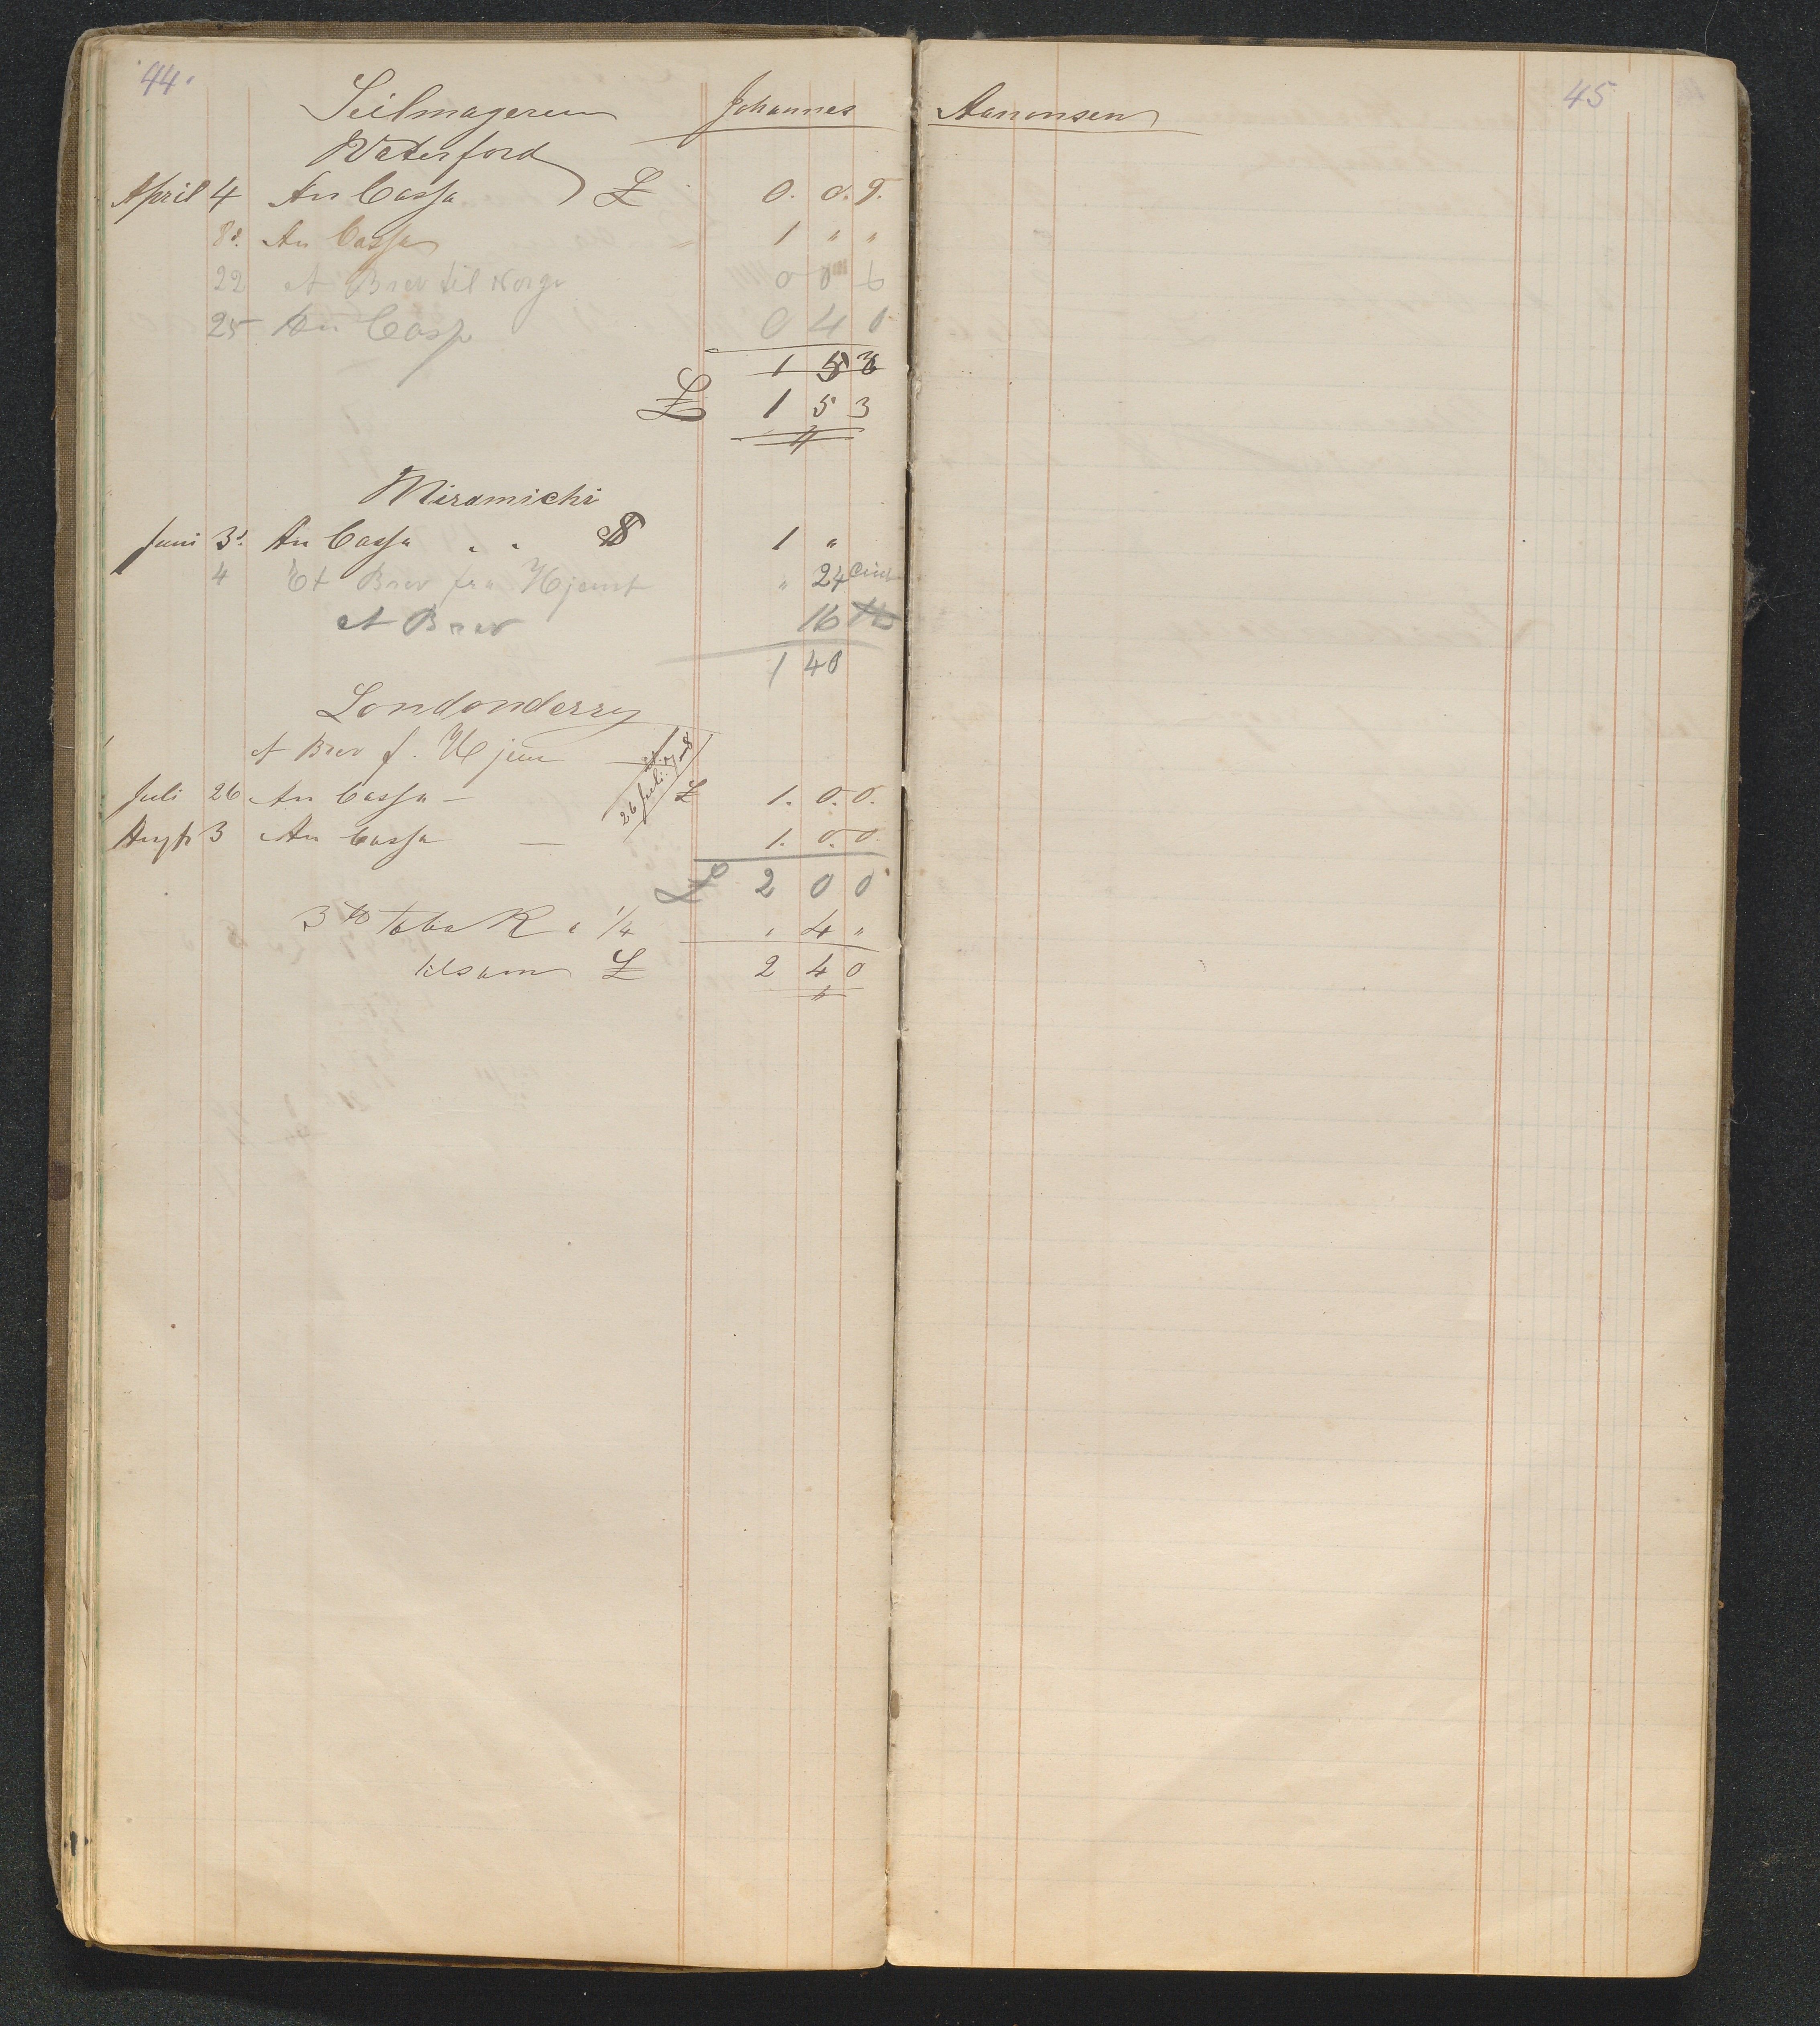 44. 45
Seilmageren Johannes Aanonsen
Waterford
April 4 An Cassa £ 0. 0. 9.
8d. An Cassa " 1 " "
22 et Brev til Norge 0 0 6
25 An Cass 0 4 0
1 5 3
£ 1 5 3
Miramichi
Juni 3d. An Cassa . . $ 1 "
4 Et Brev fra Hjemt " 24 Cent
et Brev 16
1 40
Londonderry
et Brev f. Hjem
26 Juli
Juli 26 An Cassa — £ 1. 0. 0.
Augt 3 An Cassa — 1. 0. 0
£ 2 0 0
3 tb tobak a 1/4 " 4 "
tilsam £ 2 4 0